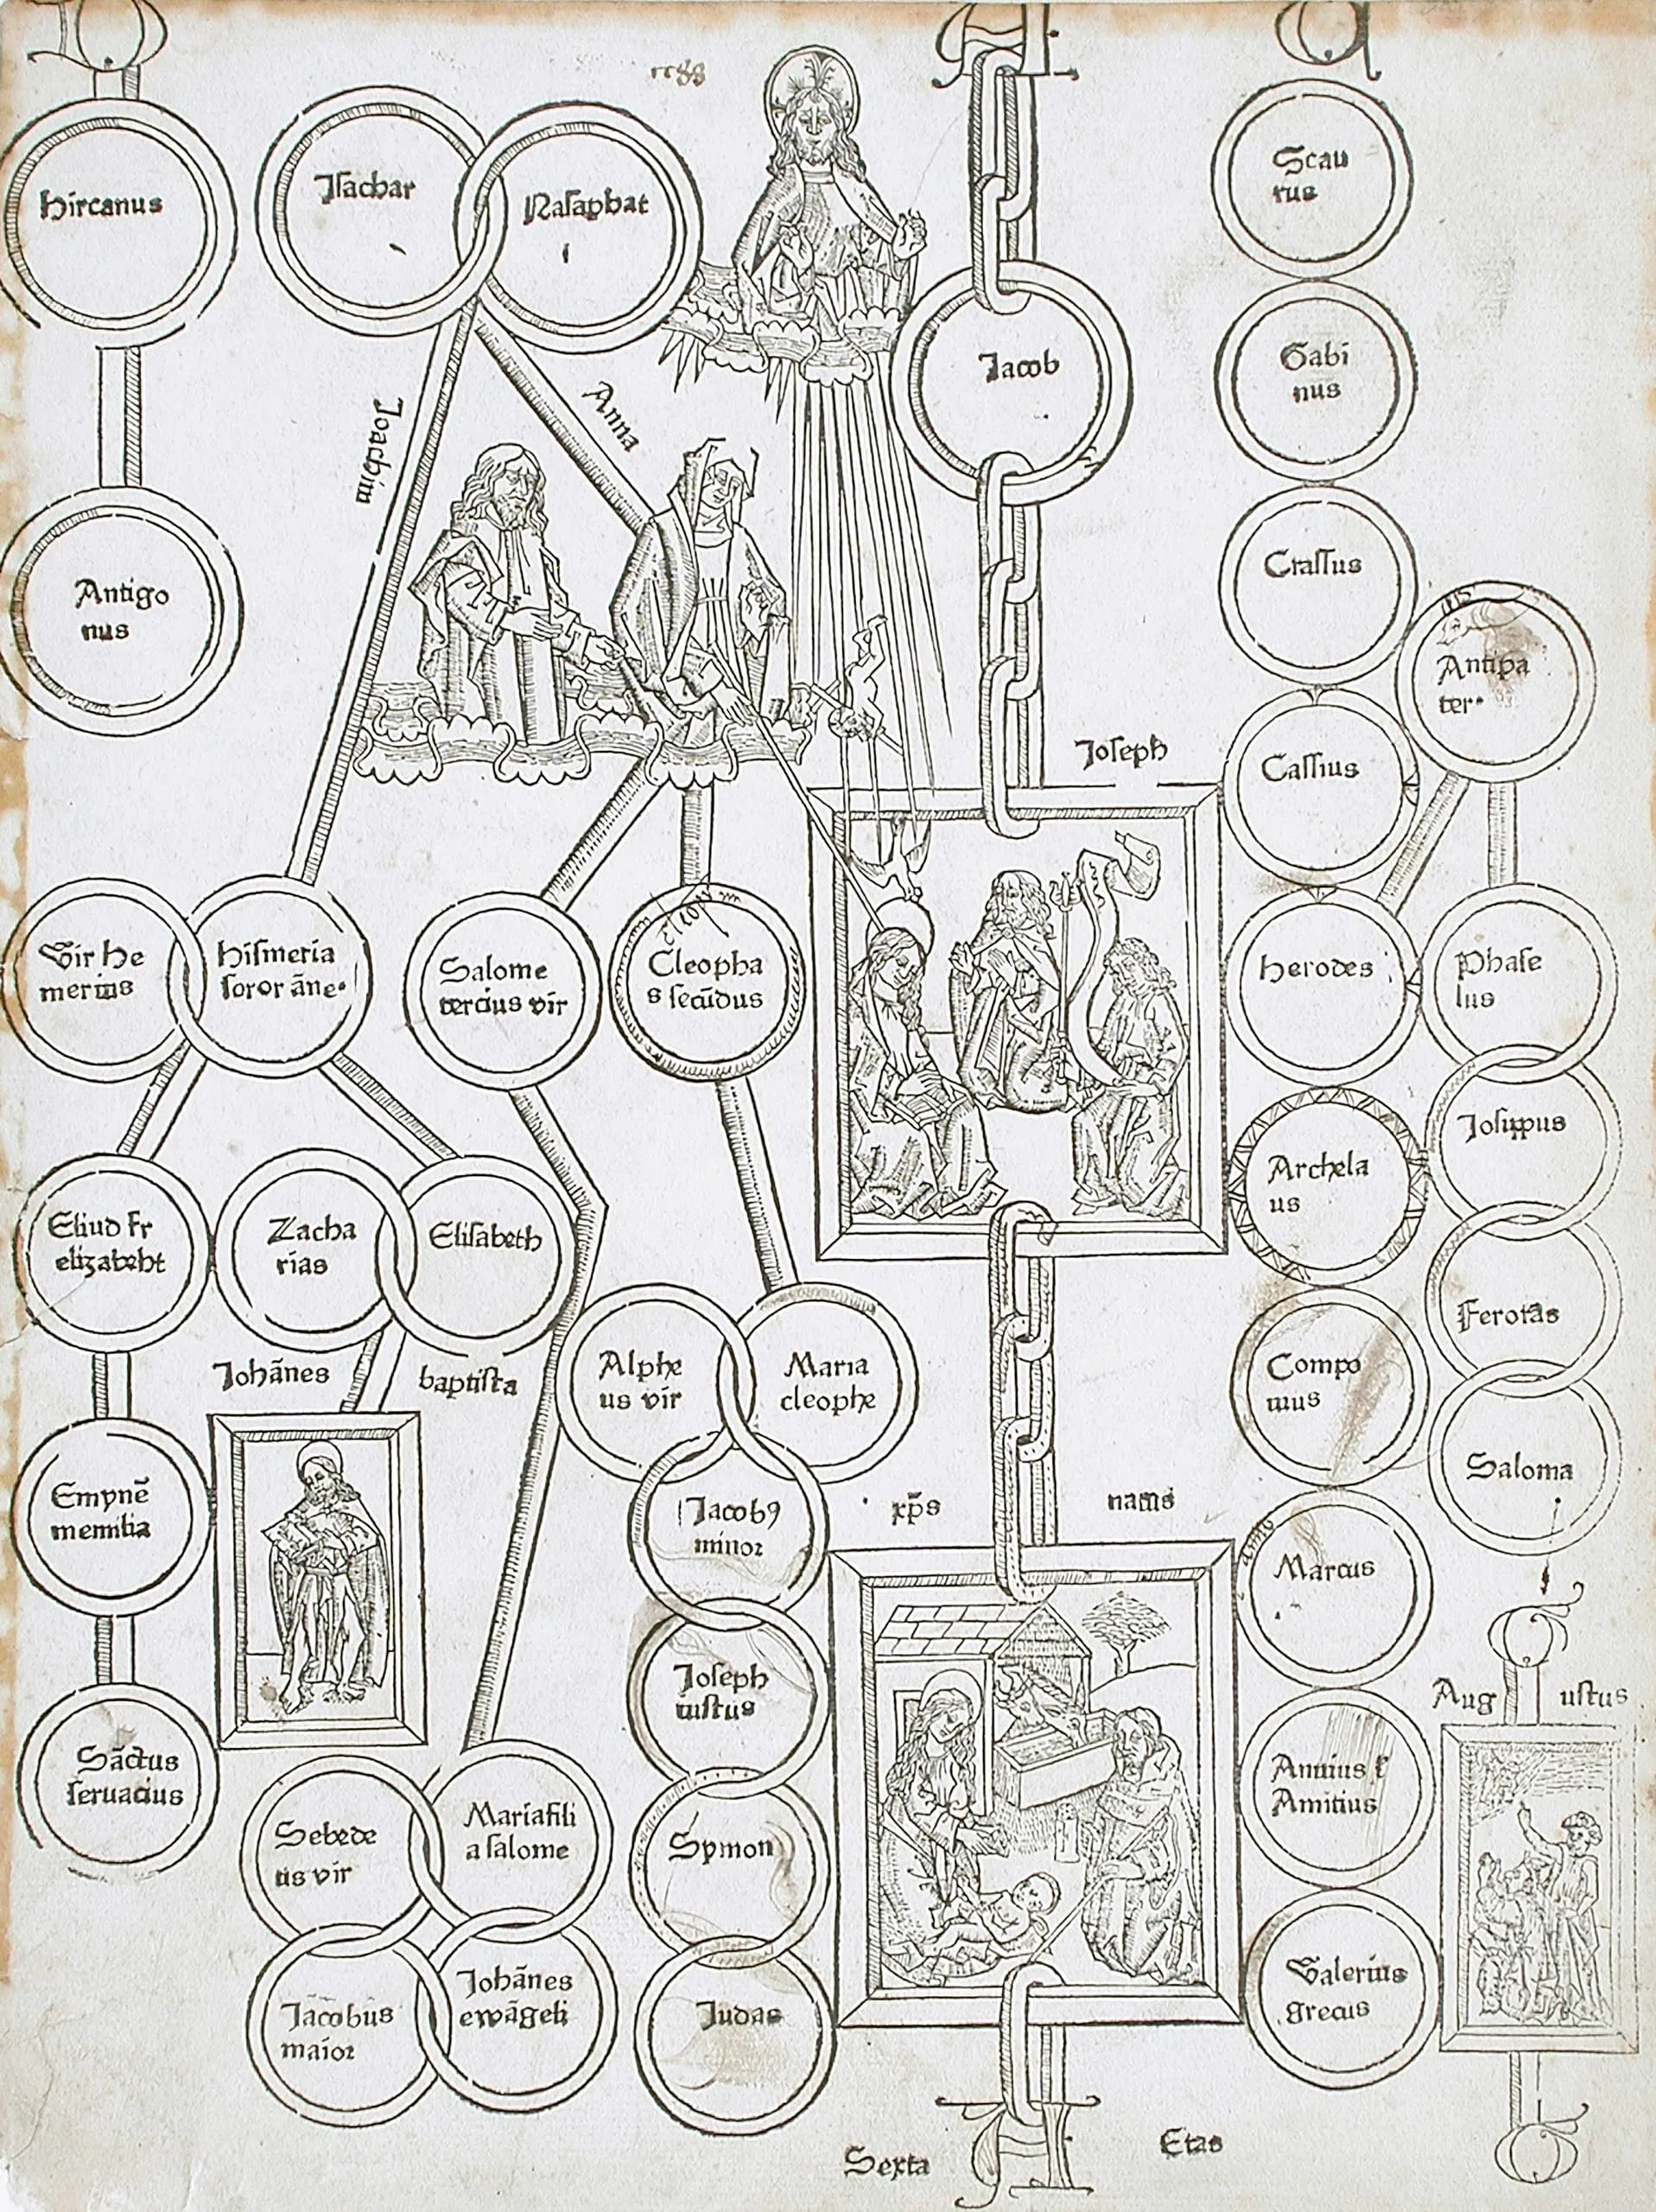 Hircanus
Isachar
Nasaphat
Scau
rus
Jacob
Gabi
nus
Anna
Joachim
Antigo
nus
Crassus
Antipa
ter
Joseph
Cassius
Vir He
merius
Hismeria
soror āne
Salome
tercius vir
Cleopha
s secūdus
Herodes
Phase
lus
Josippus
Archela
us
Eliud fr
elizabeht
Zacha
rias
Elisabeth
Ferotas
Johānes
baptista
Alphe
us vir
Maria
cleophe
Compo
nius
Saloma
Emynē
memilia
Jacobꝯ
minor
xp̄s
natus
Marcus
Joseph
iustus
Aug
ustus
Sāctus
seruacius
Annius &
Amitius
Sebede
us vir
Mariafili
a salome
Symon
Valerius
grecus
Jacobus
maior
Johānes
ewāgeli
Judas
Sexta
Etas